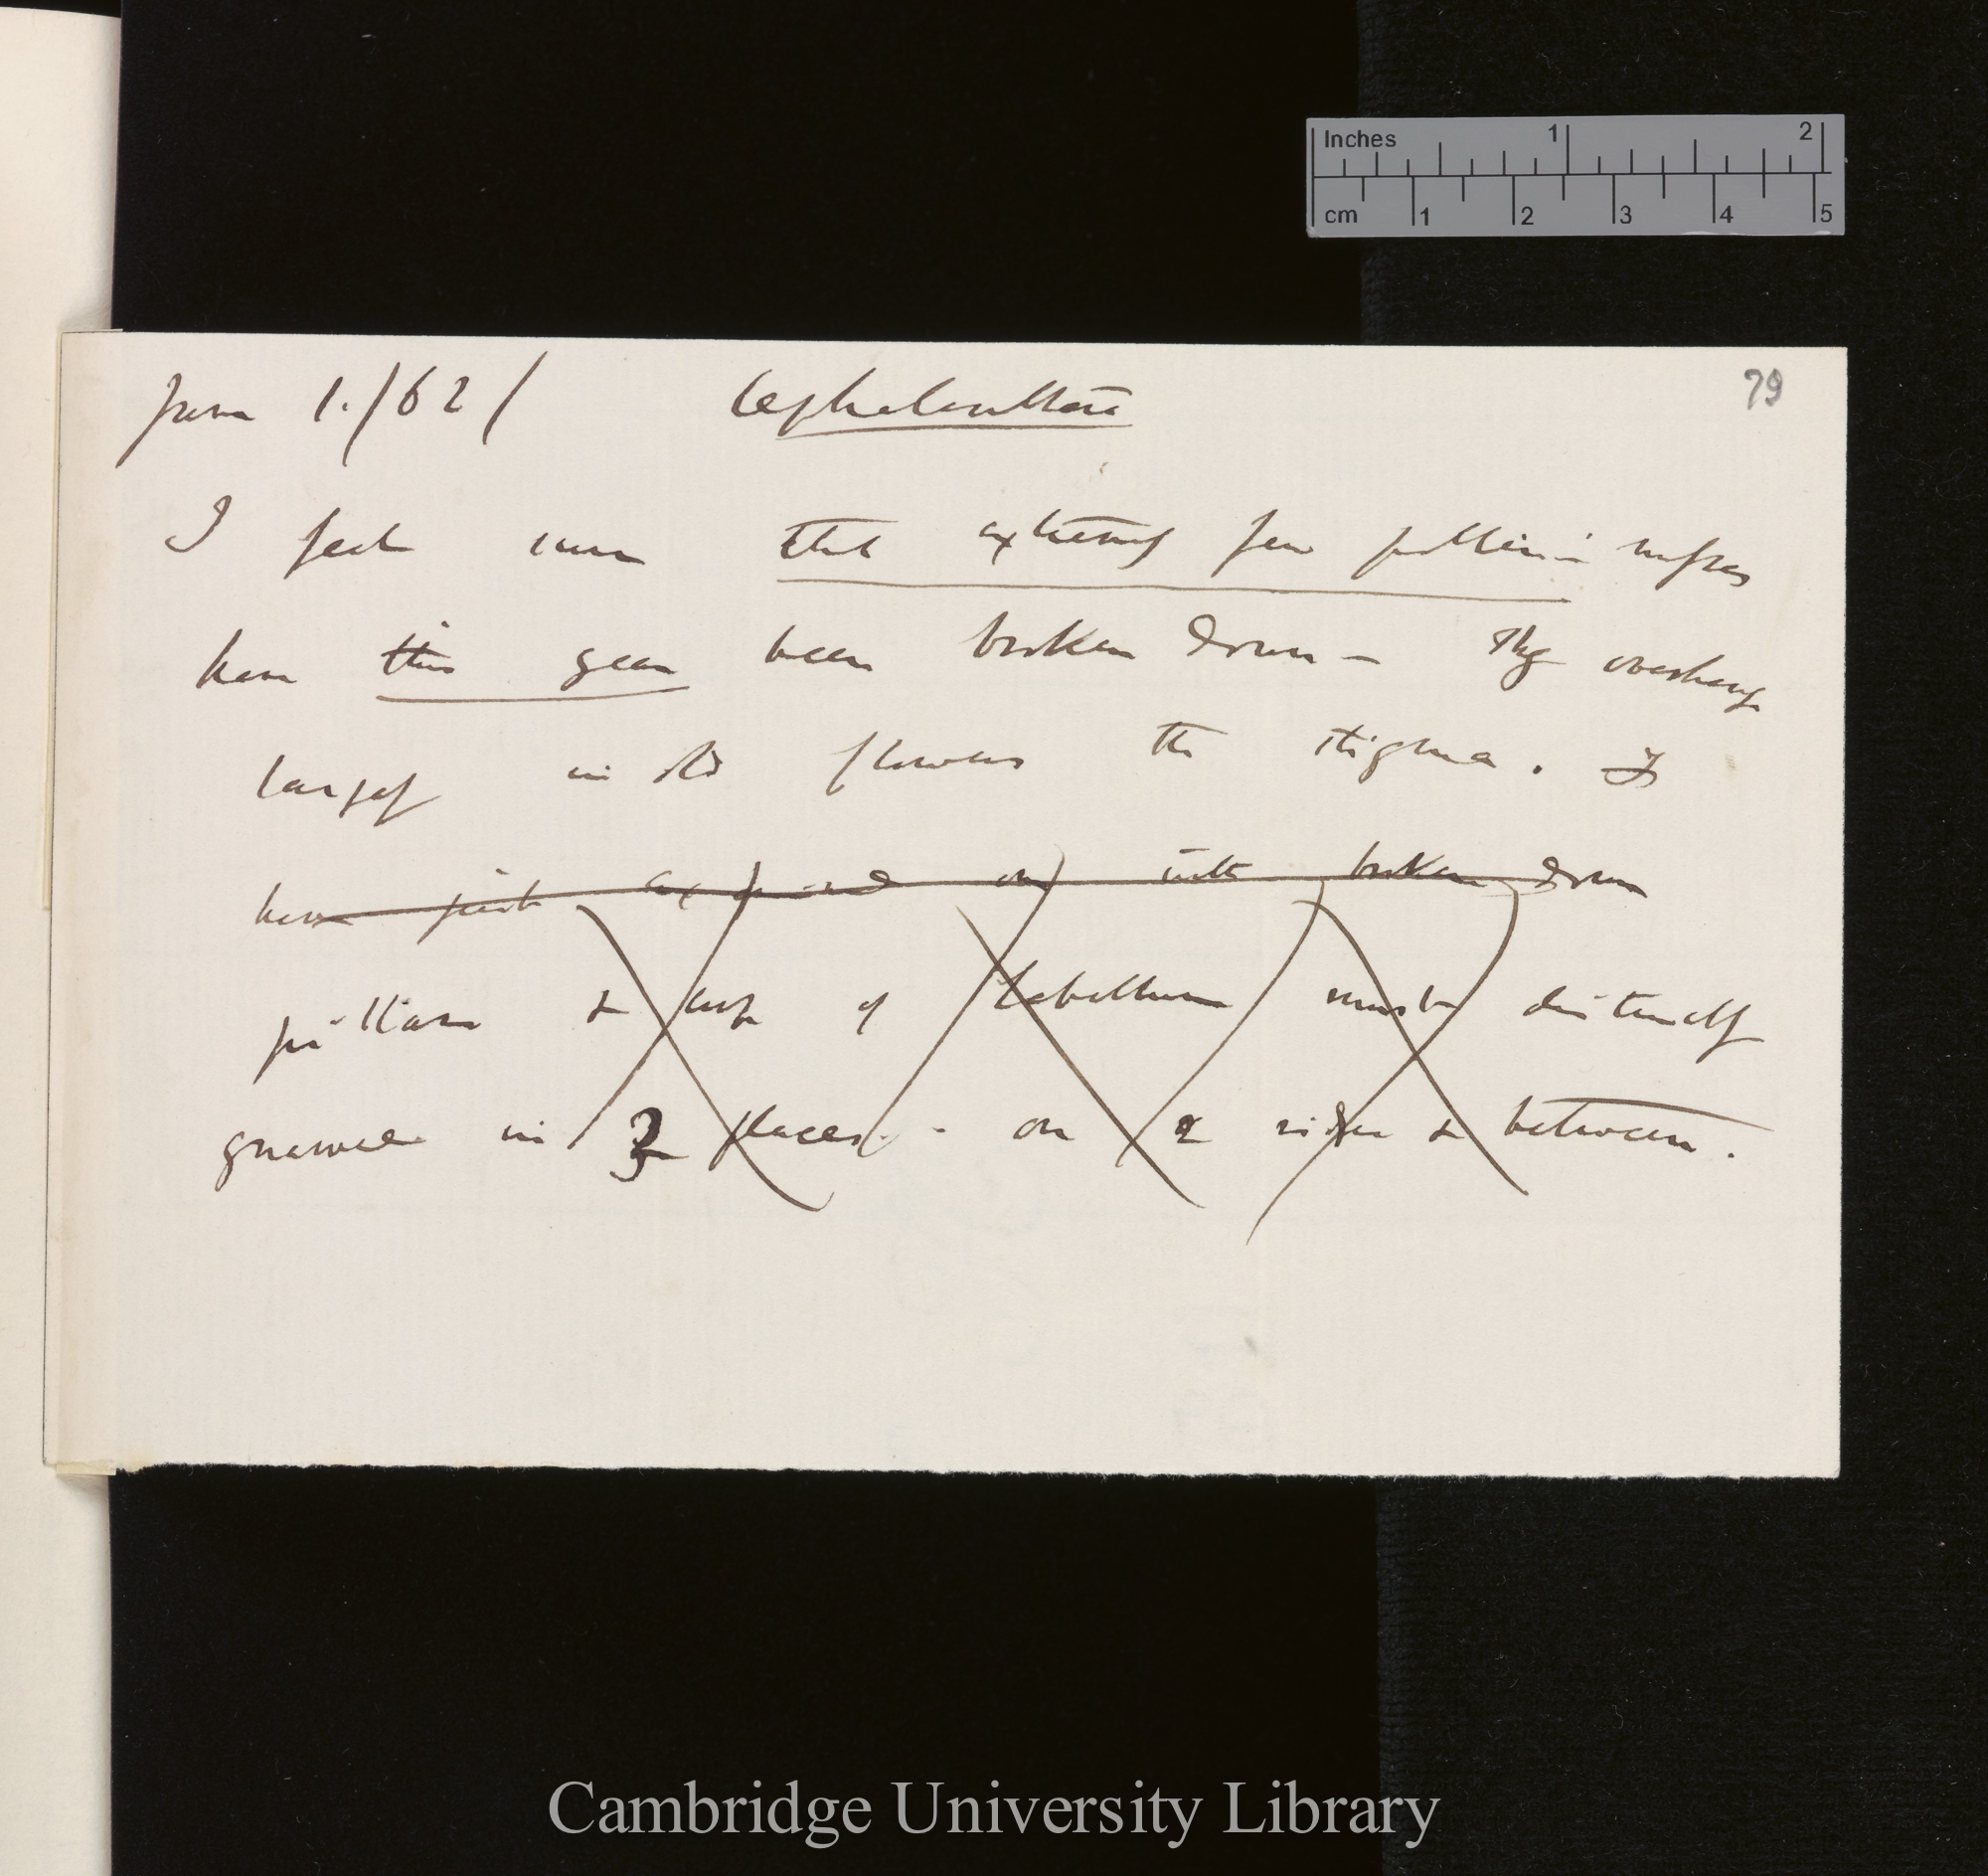 Inches 1 2
cm 1 2 3 4 5
79
June 1./62/ Cephalanthera
I feel sure that extremely few pollinia masses
have this year been broken down — They overhang
largely in old flowers the stigma. I
have just examined one with broken down
pillars & cup of Labellum must distinctly
gnawed in 3 places - on 2 sides & between.
Cambridge University Library